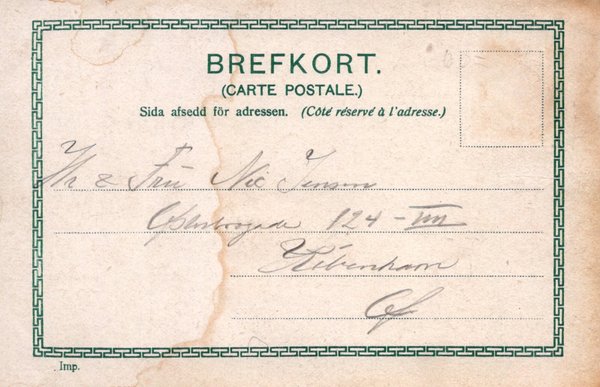 BREFKORT.
(CARTE POSTALE.)
Sida afsedd för adressen. (Côté réservé à l'adresse.)
Hr & Fru Nic Jenson
Østerbrogade 124 - IIII
København
Ø
Imp.